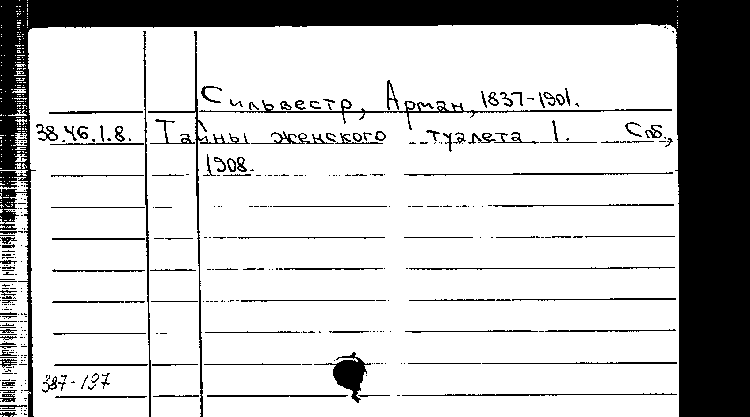 Сильвестр, Арман, 1837-1901.
38.46.1.8. Тайны женского туалета 1. Спб.,
1908.
387-197